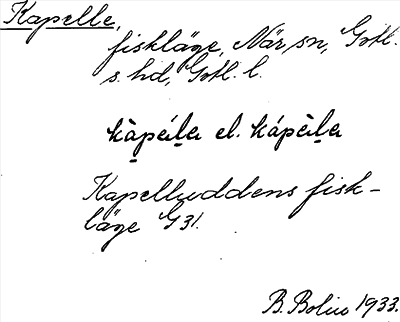 Kapelle,
fiskläge, När sn, Gotl.
s. hd, Gotl. l.
kàpéi̯la el. kápèi̯la
Kapelluddens fisk-
läge G 31.
B. Bolin 1933.